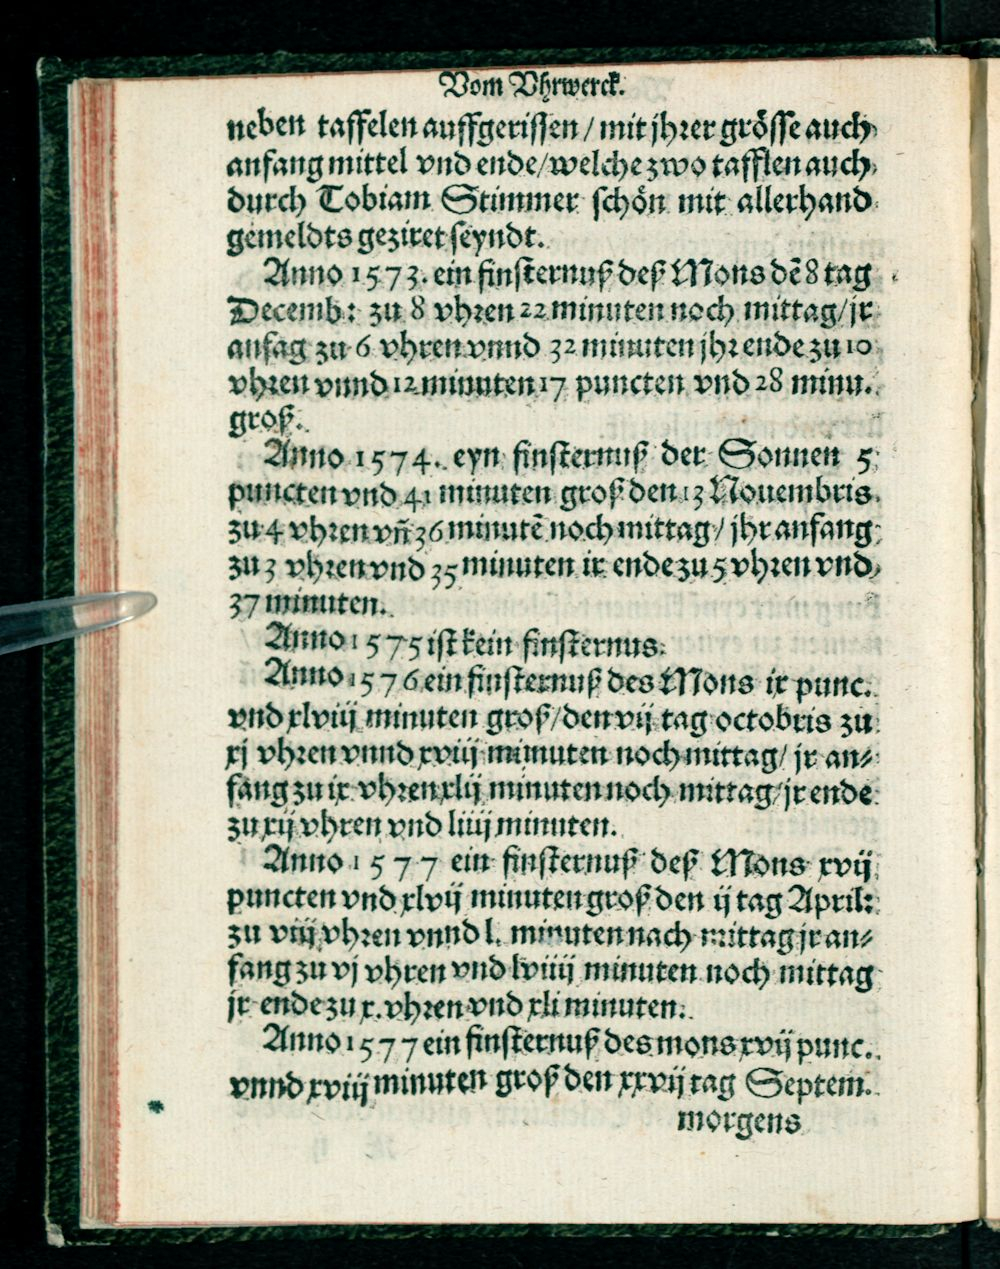 Vom Vhrwerck.
neben taffelen auffgerissen / mit jhrer grösse auch
anfang mittel vnd ende/welche zwo tafflen auch
durch Tobiam Stimmer schön mit allerhand
gemeldts geziret seyndt.
Anno 1573. ein finsternuß deß Mons dẽ 8 tag
Decemb: zu 8 vhren 22 minuten noch mittag/jr
anfag zu 6 vhren vnnd 32 minuten jhr ende zu 10
vhren vnnd 12 minuten 17 puncten vnd 28 minu.
groß.
Anno 1574. eyn finsternuß der Sonnen 5
puncten vnd 41 minuten groß den 13 Nouembris
zu 4 vhren vñ 36 minutẽ noch mittag / jhr anfang
zu 3 vhren vnd 35 minuten ir ende zu 5 vhren vnd
37 minuten.
Anno 1575 ist kein finsternus.
Anno 1576 ein finsternuß des Mons ix punc.
vnd xlviij minuten groß/den vij tag octobris zu
xj vhren vnnd xviij minuten noch mittag/ jr an⸗
fang zu ix vhren xlij minuten noch mittag/jr ende
zu xij vhren vnd liiij minuten.
Anno 1577 ein finsternuß deß Mons xvij
puncten vnd xlvij minuten groß den ij tag April:
zu viij vhren vnnd l. minuten nach mittag jr an⸗
fang zu vj vhren vnd lviiij minuten noch mittag
jr ende zu x. vhren vnd xli minuten.
Anno 1577 ein finsternuß des mons xvij punc.
vnnd xviij minuten groß den xxvij tag Septem.
morgens